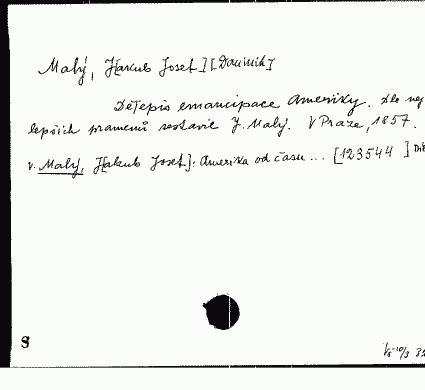 Malý, J[akub Josef] [Dominik]
Dějepis emancipace Ameriky. Dle nej
lepších pramenů sestavil J. Malý. V Praze, 1857.
v. Malý, J[akub Josef]: Amerika od času ... [123544 ] Díl
8